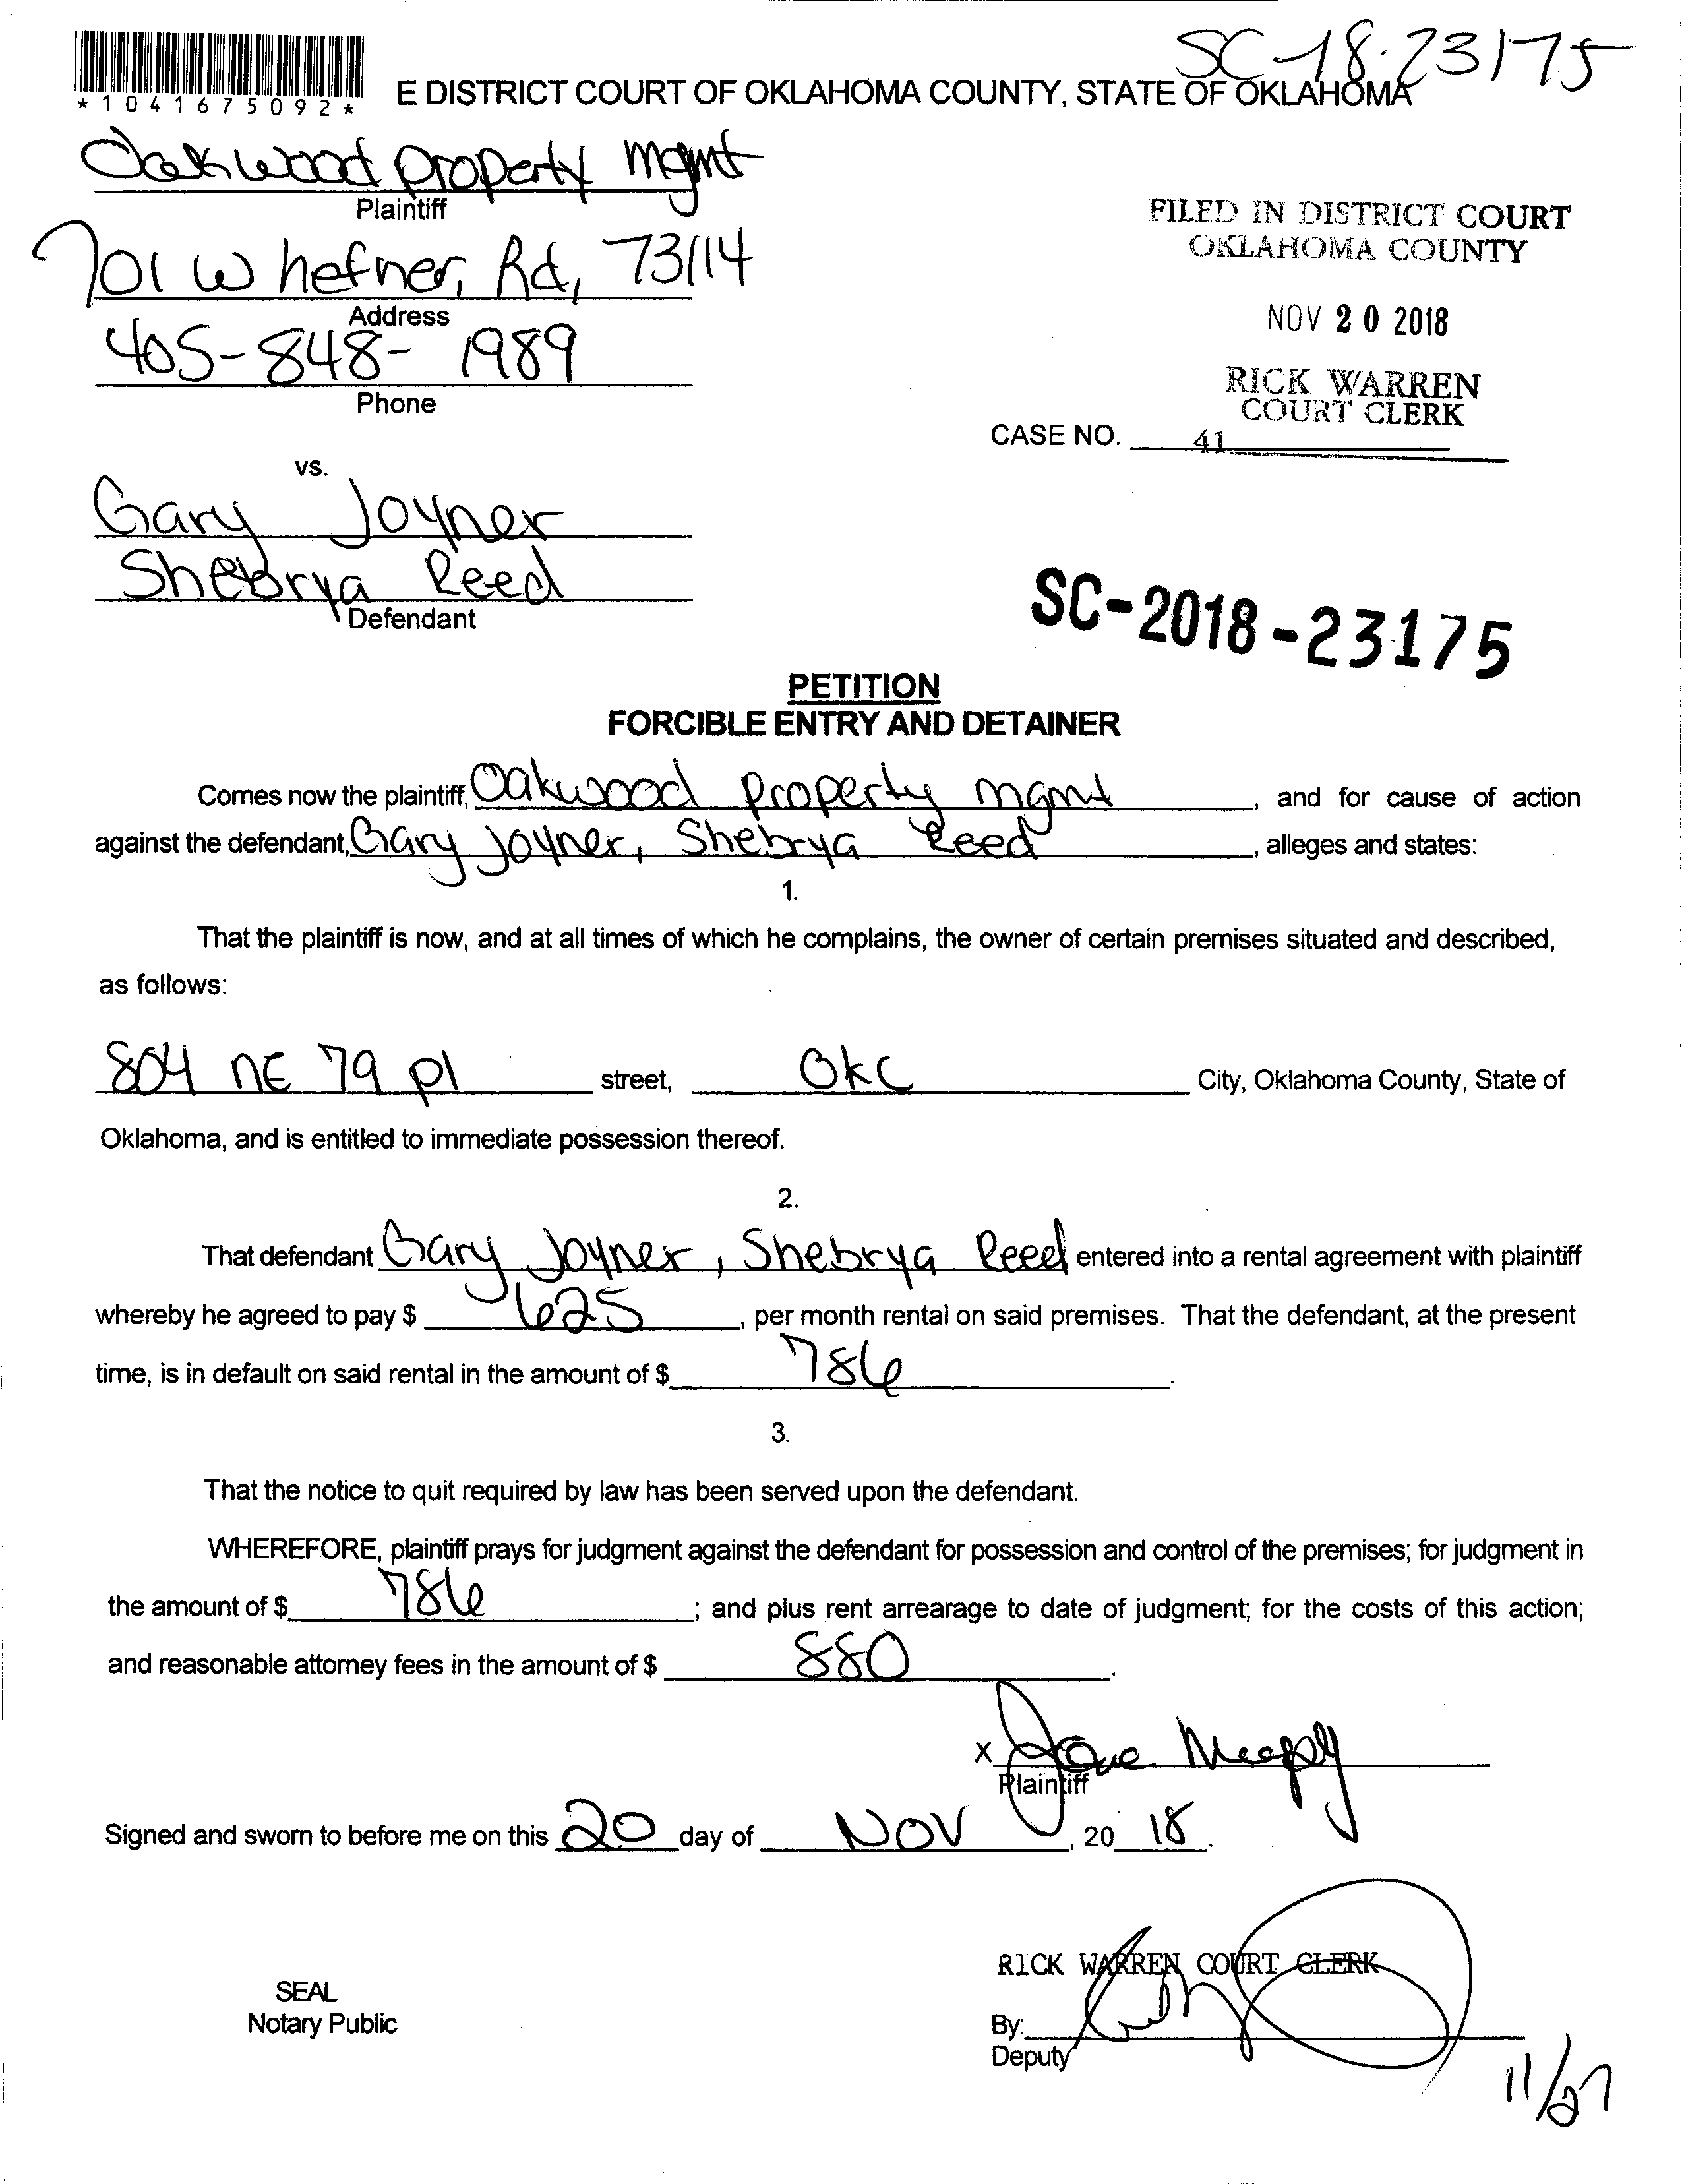 SC-18-23175
*1041675092*
E DISTRICT COURT OF OKLAHOMA COUNTY, STATE OF OKLAHOMA
Oakwood property mgmt
Plaintiff
701 W hefner, Rd, 73114
Address
405-848-1989
Phone
FILED IN DISTRICT COURT
OKLAHOMA COUNTY
NOV 20 2018
RICK WARREN
COURT CLERK
CASE NO. 41
vs.
Gary Joyner
Shebrya Reed
Defendant
SC-2018-23175
PETITION
FORCIBLE ENTRY AND DETAINER
Comes now the plaintiff, Oakwood property mgmt, and for cause of action
against the defendant, Gary Joyner, Shebrya Reed, alleges and states:
1.
That the plaintiff is now, and at all times of which he complains, the owner of certain premises situated and described,
as follows:
804 NE 79 pl street, OKC City, Oklahoma County, State of
Oklahoma, and is entitled to immediate possession thereof.
2.
That defendant Gary Joyner, Shebrya Reed entered into a rental agreement with plaintiff
whereby he agreed to pay $ 625, per month rental on said premises. That the defendant, at the present
time, is in default on said rental in the amount of $ 786.
3.
That the notice to quit required by law has been served upon the defendant.
WHEREFORE, plaintiff prays for judgment against the defendant for possession and control of the premises; for judgment in
the amount of $ 786; and plus rent arrearage to date of judgment; for the costs of this action;
and reasonable attorney fees in the amount of $ 880.
X
Plaintiff
Signed and sworn to before me on this 20 day of NOV, 20 18.
RICK WARREN COURT CLERK
SEAL
Notary Public
By:
Deputy
11/27